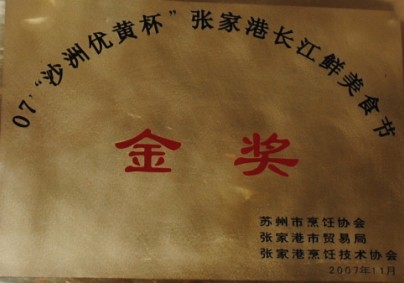 07'“沙洲优黄杯”张家港长江鲜美食节
金奖
苏州市烹饪协会
张家港市贸易局
张家港烹饪技术协会
2007年11月